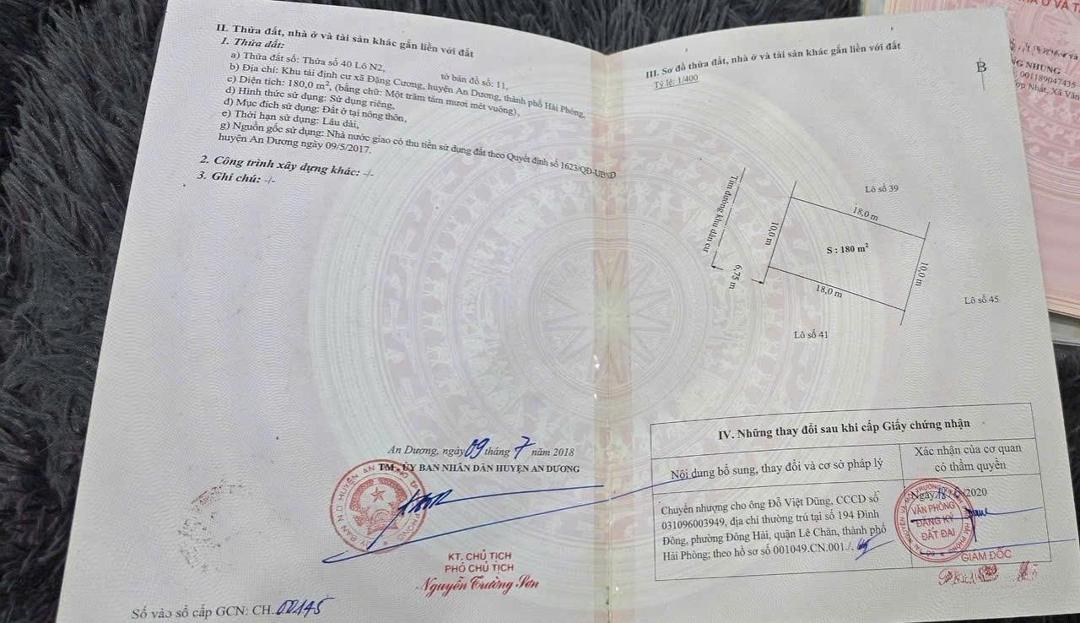 II. Thửa đất, nhà ở và tài sản khác gắn liền với đất
1. Thửa đất:
a) Thửa đất số: Thửa số 40 Lô N2, tờ bản đồ số: 11,
b) Địa chỉ: Khu tái định cư xã Đặng Cương, huyện An Dương, thành phố Hải Phòng,
c) Diện tích: 180,0 m², (bằng chữ: Một trăm tám mươi mét vuông),
d) Hình thức sử dụng: Sử dụng riêng,
đ) Mục đích sử dụng: Đất ở tại nông thôn,
e) Thời hạn sử dụng: Lâu dài,
g) Nguồn gốc sử dụng: Nhà nước giao có thu tiền sử dụng đất theo Quyết định số 1623/QĐ-UBND
huyện An Dương ngày 09/5/2017.
2. Công trình xây dựng khác: -/-
3. Ghi chú: -/-
An Dương, ngày 09 tháng 7 năm 2018
TM. ỦY BAN NHÂN DÂN HUYỆN AN DƯƠNG
KT. CHỦ TỊCH
PHÓ CHỦ TỊCH
Nguyễn Trường Sơn
Số vào sổ cấp GCN: CH.00145
III. Sơ đồ thửa đất, nhà ở và tài sản khác gắn liền với đất
Tỷ lệ: 1/400
B
Tim đường khu dân cư
6,75 m
Lô số 39
18,0 m
10,0 m
S : 180 m²
10,0 m
18,0 m
Lô số 45
Lô số 41
IV. Những thay đổi sau khi cấp Giấy chứng nhận
Nội dung bổ sung, thay đổi và cơ sở pháp lý
Xác nhận của cơ quan
có thẩm quyền
Chuyển nhượng cho ông Đỗ Việt Dũng, CCCD số
031096003949, địa chỉ thường trú tại số 194 Đình
Đông, phường Đông Hải, quận Lê Chân, thành phố
Hải Phòng; theo hồ sơ số 001049.CN.001./.
Ngày 2020
VĂN PHÒNG
ĐĂNG KÝ
ĐẤT ĐAI
GIÁM ĐỐC
NG NHUNG
001189047435
ợp Nhất, Xã Vân